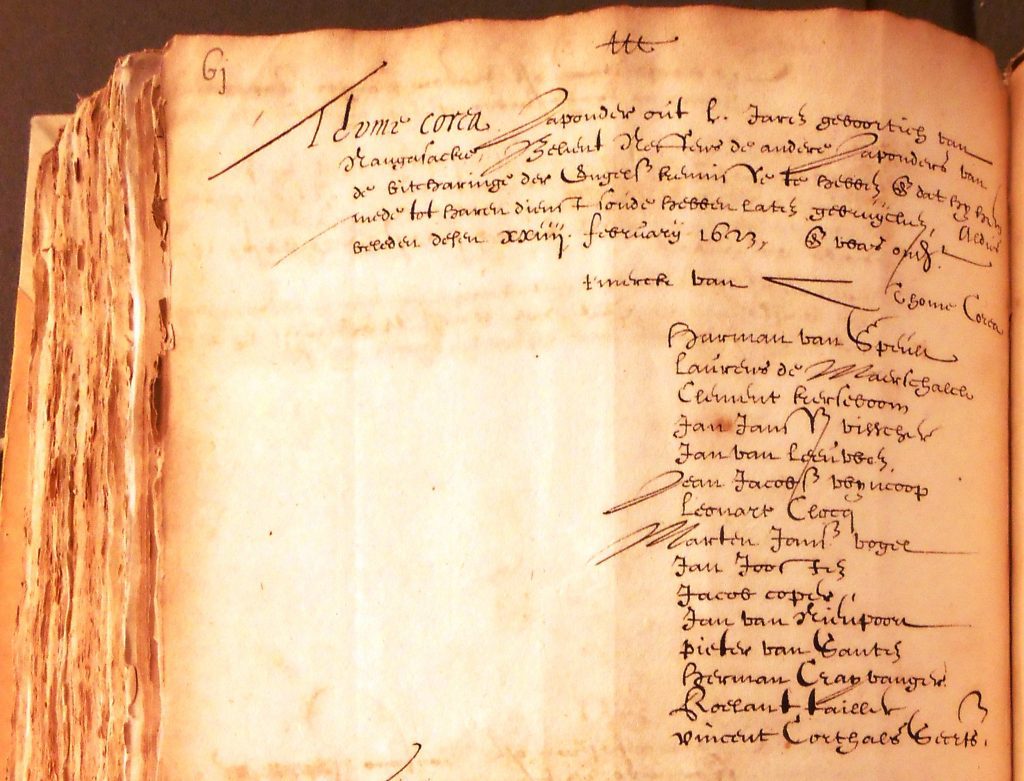 61
ttt
Tdome corea Japonder out L. Jaren geboortich van
Nangasacke, Belient Neffens de andere Japonders van
de bitscharinge der Engelsz kennisse te hebben & dat hy hem
mede tot haren dienst soude hebben laten gebruijcken, Aldus
beleden desen xxiiij. february 1623, & was ondt.
tmercke van Thome Corea
Harman van Speult
Laurens de Maerschalck
Clement kerseboom
Jan Jansz visscher
Jan van Leeuwen,
Jean Jacobsz wyncoop
Leonart Clocq
Marten Jansz vogel
Jan Joosten
Jacob coper
Jan van Nieupoort
pieter van Santen
Herman Crayvanger
Roelant tailler
vincent Corthals Secrts.